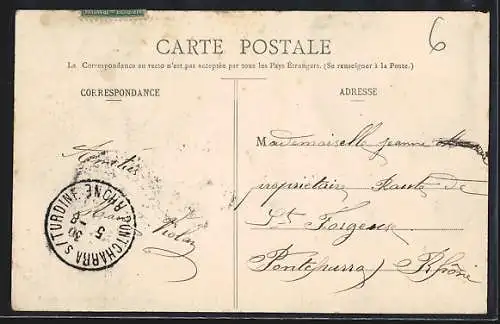 6
CARTE POSTALE
La Correspondance au verso n'est pas acceptée par tous les Pays Étrangers. (Se renseigner à la Poste.)
CORRESPONDANCE
ADRESSE
Mademoiselle Jeanne
propriétaire Route de
St Forgeux
Pontcharra Rhône
Amitiés
PONTCHARRA S/TURDINE RHONE
5 -8
30